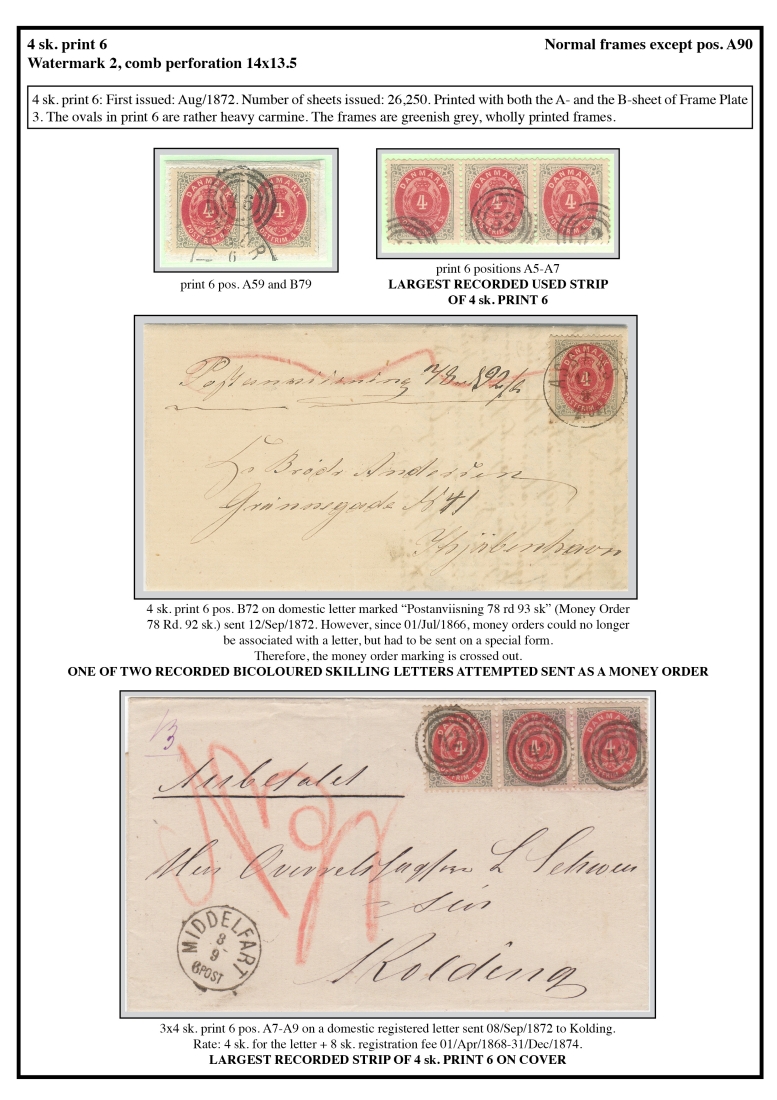 4 sk. print 6
Normal frames except pos. A90
Watermark 2, comb perforation 14x13.5
4 sk. print 6: First issued: Aug/1872. Number of sheets issued: 26,250. Printed with both the A- and the B-sheet of Frame Plate
3. The ovals in print 6 are rather heavy carmine. The frames are greenish grey, wholly printed frames.
DANMARK DANMARK
4 4
DANMARK DANMARK DANMARK
4 4 4
print 6 pos. A59 and B79
print 6 positions A5-A7
LARGEST RECORDED USED STRIP
OF 4 sk. PRINT 6
DANMARK
4
POSTFRIM. 4 SK.
Postanviisning
Hr Brødr Andersen
Grønnegade N 41
Kjøbenhavn
4 sk. print 6 pos. B72 on domestic letter marked “Postanviisning 78 rd 93 sk” (Money Order
78 Rd. 92 sk.) sent 12/Sep/1872. However, since 01/Jul/1866, money orders could no longer
be associated with a letter, but had to be sent on a special form.
Therefore, the money order marking is crossed out.
ONE OF TWO RECORDED BICOLOURED SKILLING LETTERS ATTEMPTED SENT AS A MONEY ORDER
DANMARK DANMARK DANMARK
4 42 42
Anbefalet
L Schwen
Kolding
MIDDELFART
8
9
6POST
3x4 sk. print 6 pos. A7-A9 on a domestic registered letter sent 08/Sep/1872 to Kolding.
Rate: 4 sk. for the letter + 8 sk. registration fee 01/Apr/1868-31/Dec/1874.
LARGEST RECORDED STRIP OF 4 sk. PRINT 6 ON COVER